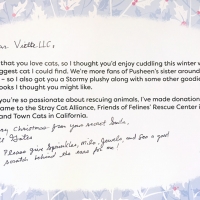 Vielle LLC,
that you love cats, so I thought you'd enjoy cuddling this winter w
ggest cat I could find. We're more fans of Pusheen's sister around
– so I also got you a Stormy plushy along with some other goodie
ooks I thought you might like.
you're so passionate about rescuing animals, I've made donation
ame to the Stray Cat Alliance, Friends of Felines' Rescue Center i
and Town Cats in California.
ry Christmas from your secret Santa,
ll Gates
Please give Sprinkles, Milo, and for a good
scratch behind the ears for me!